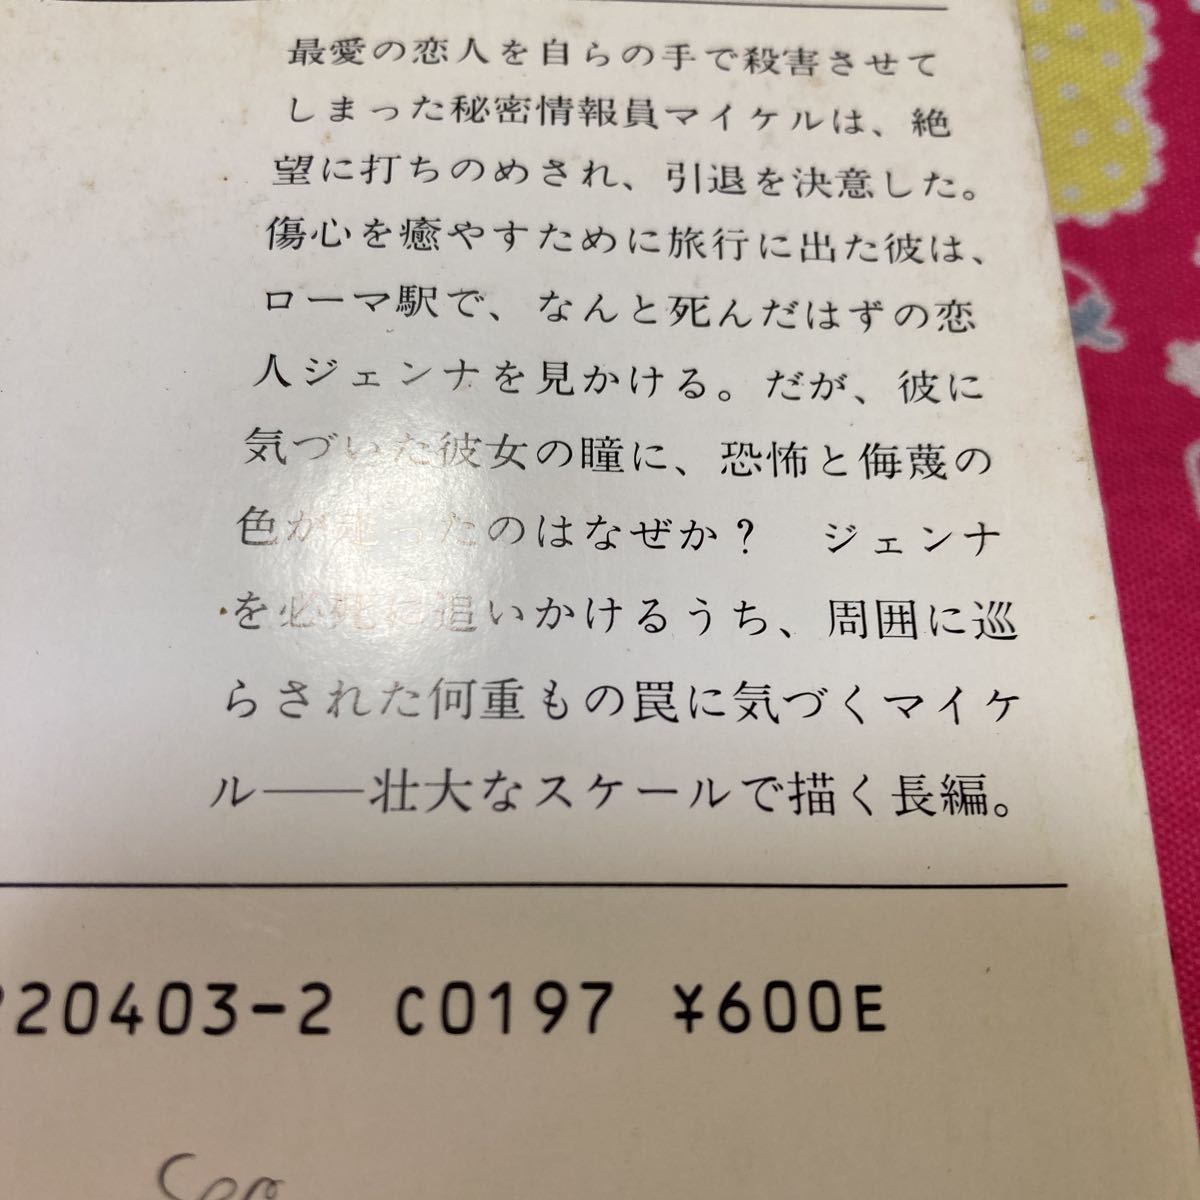 最愛の恋人を自らの手で殺害させて
しまった秘密情報員マイケルは、絶
望に打ちのめされ、引退を決意した。
傷心を癒やすために旅行に出た彼は、
ローマ駅で、なんと死んだはずの恋
人ジェンナを見かける。だが、彼に
気づいた彼女の瞳に、恐怖と侮蔑の
色が走ったのはなぜか？　ジェンナ
を必死に追いかけるうち、周囲に巡
らされた何重もの罠に気づくマイケ
ル——壮大なスケールで描く長編。
20403-2 C0197 ¥600E